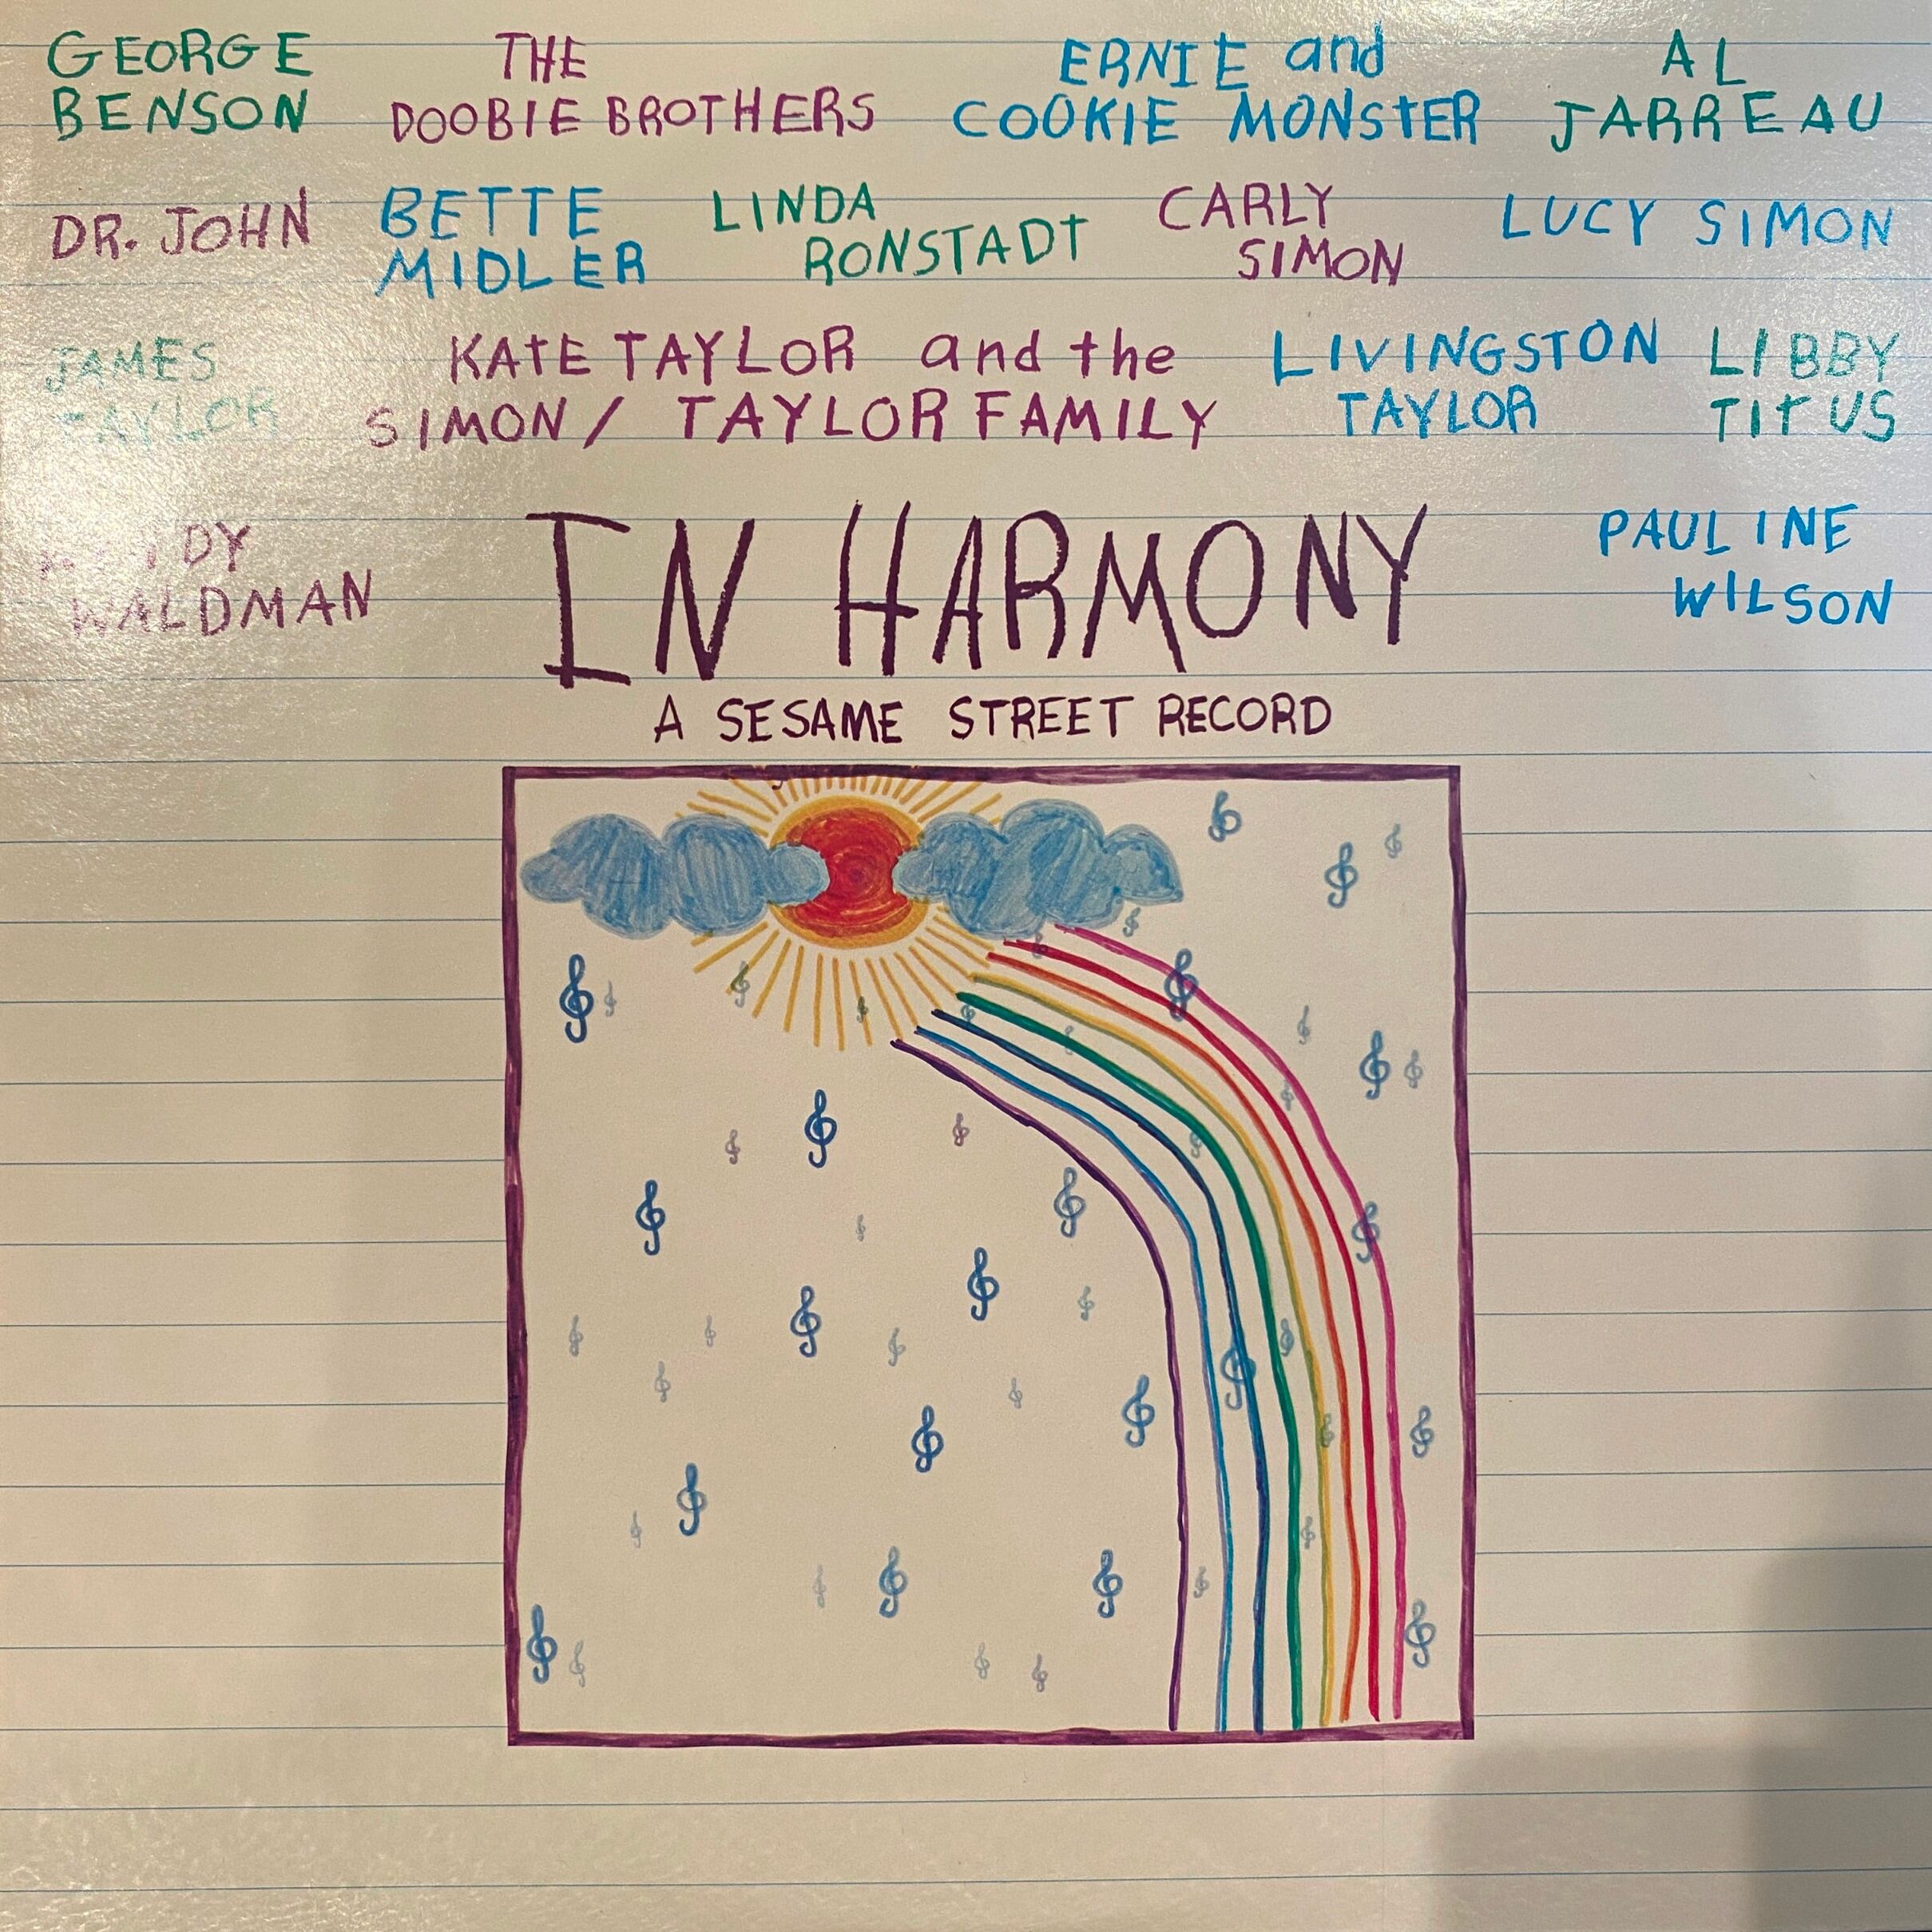 GEORGE
BENSON
THE
DOOBIE BROTHERS
ERNIE and
COOKIE MONSTER
AL
JARREAU
DR. JOHN
BETTE
MIDLER
LINDA
RONSTADT
CARLY
SIMON
LUCY SIMON
JAMES
TAYLOR
KATE TAYLOR and the
SIMON / TAYLOR FAMILY
LIVINGSTON
TAYLOR
LIBBY
TITUS
WALDMAN
IN HARMONY
A SESAME STREET RECORD
PAULINE
WILSON